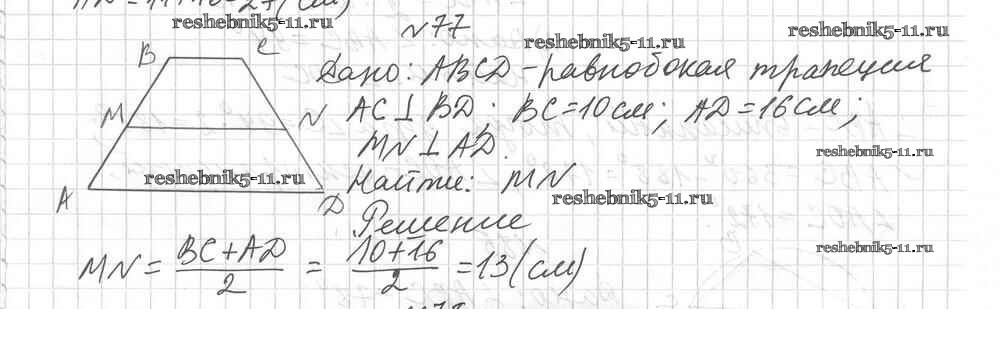 AD = 11+16 = 27 (см)
reshebnik5-11.ru
№77
reshebnik5-11.ru
reshebnik5-11.ru
B C
Дано: ABCD - равнобокая трапеция
M N
AC ⊥ BD; BC = 10 см; AD = 16 см;
MN ⊥ AD.
reshebnik5-11.ru
reshebnik5-11.ru
Найти: MN
reshebnik5-11.ru
A D
Решение
reshebnik5-11.ru
MN = (BC + AD)/2 = (10+16)/2 = 13 (см)